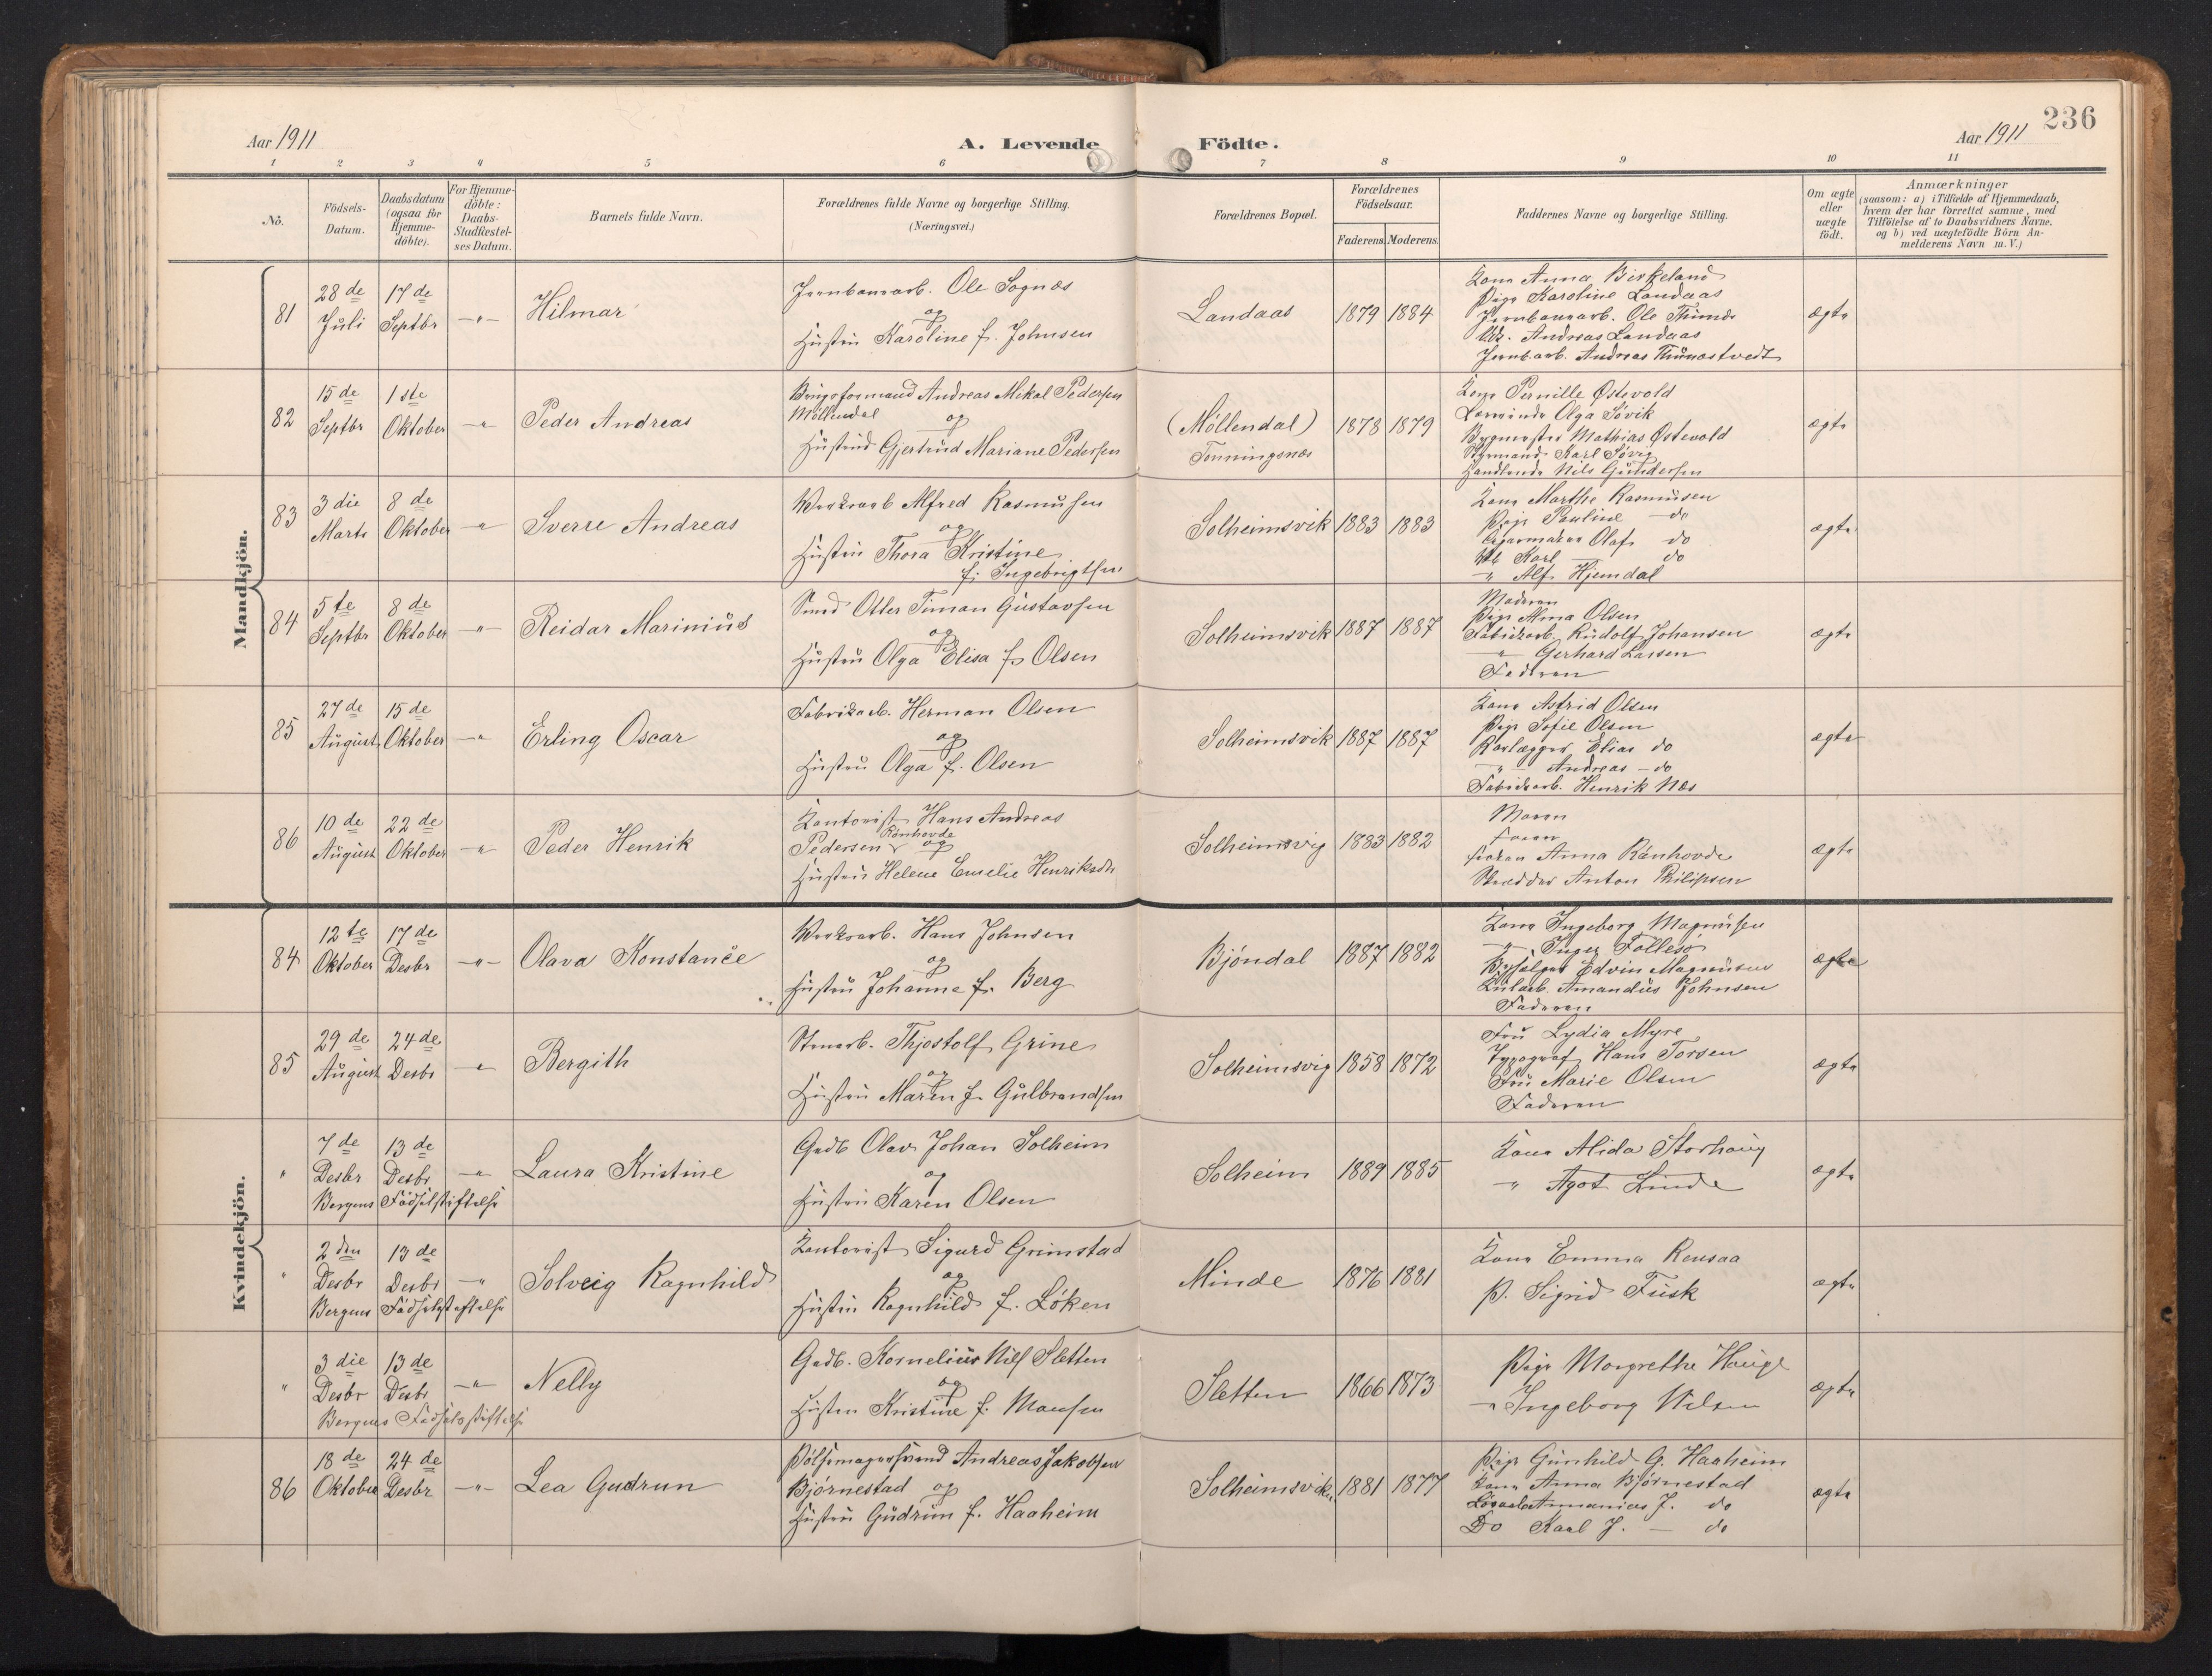 236
Aar 1911
A. Levende Födte.
Aar 1911
1 2 3 4 5 6 7 8 9 10 11
No.
Födsels-Datum.
Daabsdatum (ogsaa for Hjemme-döbte).
For Hjemme-döbte: Daabs-Stadfæstel-ses Datum.
Barnets fulde Navn.
Forældrenes fulde Navne og borgerlige Stilling.
(Næringsvei.)
Forældrenes Bopæl.
Forældrenes Födselsaar.
Faderens. Moderens.
Faddernes Navne og borgerlige Stilling.
Om ægte eller uægte födt.
Anmærkninger
(saasom: a) i Tilfælde af Hjemmedaab,
hvem der har forrettet samme, med
Tilföielse af to Daabsvidners Navne.
og b) ved uægtefödte Börn An-
melderens Navn m. V.)
Mandkjön.
81
28 de Juli
17 de Septbr
-"-
Hilmar
Jernbanearb. Ole Sognæs
og
Hustru Karoline f. Johnsen
Landaas
1879 1884
Kone Anna Birkeland
Pige Karoline Landaas
Jernbanearb. Ole Thunes
Andreas Landaas
Jernb.arb. Andreas Thunestvedt
ægte
82
15 de Septbr
1 ste Oktober
-"-
Peder Andreas
Andreas Mikal Pedersen
Möllendal
og
Hustru Gjertrud Mariane Pedersen
(Möllendal)
1878 1879
Kone Pernille Østevold
Lærerinde Olga Søvik
Bygmester Mathias Østevold
Styrmand Karl Søvig
Handlende Nils Gundersen
ægte
83
3 die Marts
8 de Oktober
-"-
Sverre Andreas
Verksarb Alfred Rasmussen
og
Hustru Thora Kristine
f. Ingebrigtsen
Solheimsvik
1883 1883
Kone Marthe Rasmussen
Pige Pauline do
Olaf do
Karl do
" Alf Hjemdal
ægte
84
5 te Septbr
8 de Oktober
-"-
Reidar Marinius
Smed Otter Timan Gustavsen
og
Hustru Olga Elisa f. Olsen
Solheimsvik
1887 1887
Moderen
Pige Anna Olsen
Fabrikarb. Rudolf Johansen
" Gerhard Larsen
Faderen
ægte
85
27 de August
15 de Oktober
-"-
Erling Oscar
Fabrikarb. Herman Olsen
og
Hustru Olga f. Olsen
Solheimsvik
1887 1887
Kone Astrid Olsen
Pige Sofie Olsen
Rørlægger Elias do
" Andreas - do
Fabrikarb. Henrik Næs
ægte
86
10 de August
22 de Oktober
-"-
Peder Henrik
Kontorist Hans Andreas
Rønhovde
Pedersen og
Hustru Helene Emelie Henriksdtr
Solheimsvig
1883 1882
Moren
Faren
Anna Rønhovde
Skredder Anton Philipsen
ægte
Kvindekjön.
84
12 te Oktober
17 de Desbr
-"-
Olava Konstance
Verksarb. Hans Johnsen
og
Hustru Johanne f. Berg
Bjøndal
1887 1882
Kone Ingeborg Magnusen
" Inger Follesø
Edvin Magnusen
Amandus Johnsen
Faderen
ægte
85
29 de August
24 de Desbr
"
Bergith
Stenarb. Thjostolf Grine
og
Hustru Maren f. Gulbrandsen
Solheimsvig
1858 1872
Fru Lydia Myre
Typograf Hans Torsen
Fru Marie Olsen
Faderen
ægte
"
7 de Desbr
13 de Desbr
-"-
Bergens Födselsstiftelse
Laura Kristine
Gadb Olav Johan Solheim
og
Hustru Karen Olsen
Solheim
1889 1885
Kone Alida Storhaug
" Agot Linde
ægte
"
2 den Desbr
13 de Desbr
-"-
Bergens Födselsstiftelse
Solveig Ragnhild
Kontorist Sigurd Grimstad
og
Hustru Ragnhild f. Løken
Minde
1876 1881
Kone Emma Rensaa
P. Sigrid Fusk
ægte
"
3 die Desbr
13 de Desbr
-"-
Bergens Fødselsstiftelse
Nelly
Gadb. Kornelius Nils Sletten
og
Hustru Kristine f. Monsen
Sletten
1866 1873
Pige Margrethe Hauge
" Ingeborg Nilsen
ægte
86
18 de Oktober
24 de Desbr
-"-
Lea Gudrun
Pølsemagersvend Andreas Jakobsen
Bjørnestad og
Hustru Gudrun f. Haaheim
Solheimsviken
1881 1877
Pige Gunhild G. Haaheim
Kone Anna Bjørnestad
J. do
Do Karl J. - do
ægte